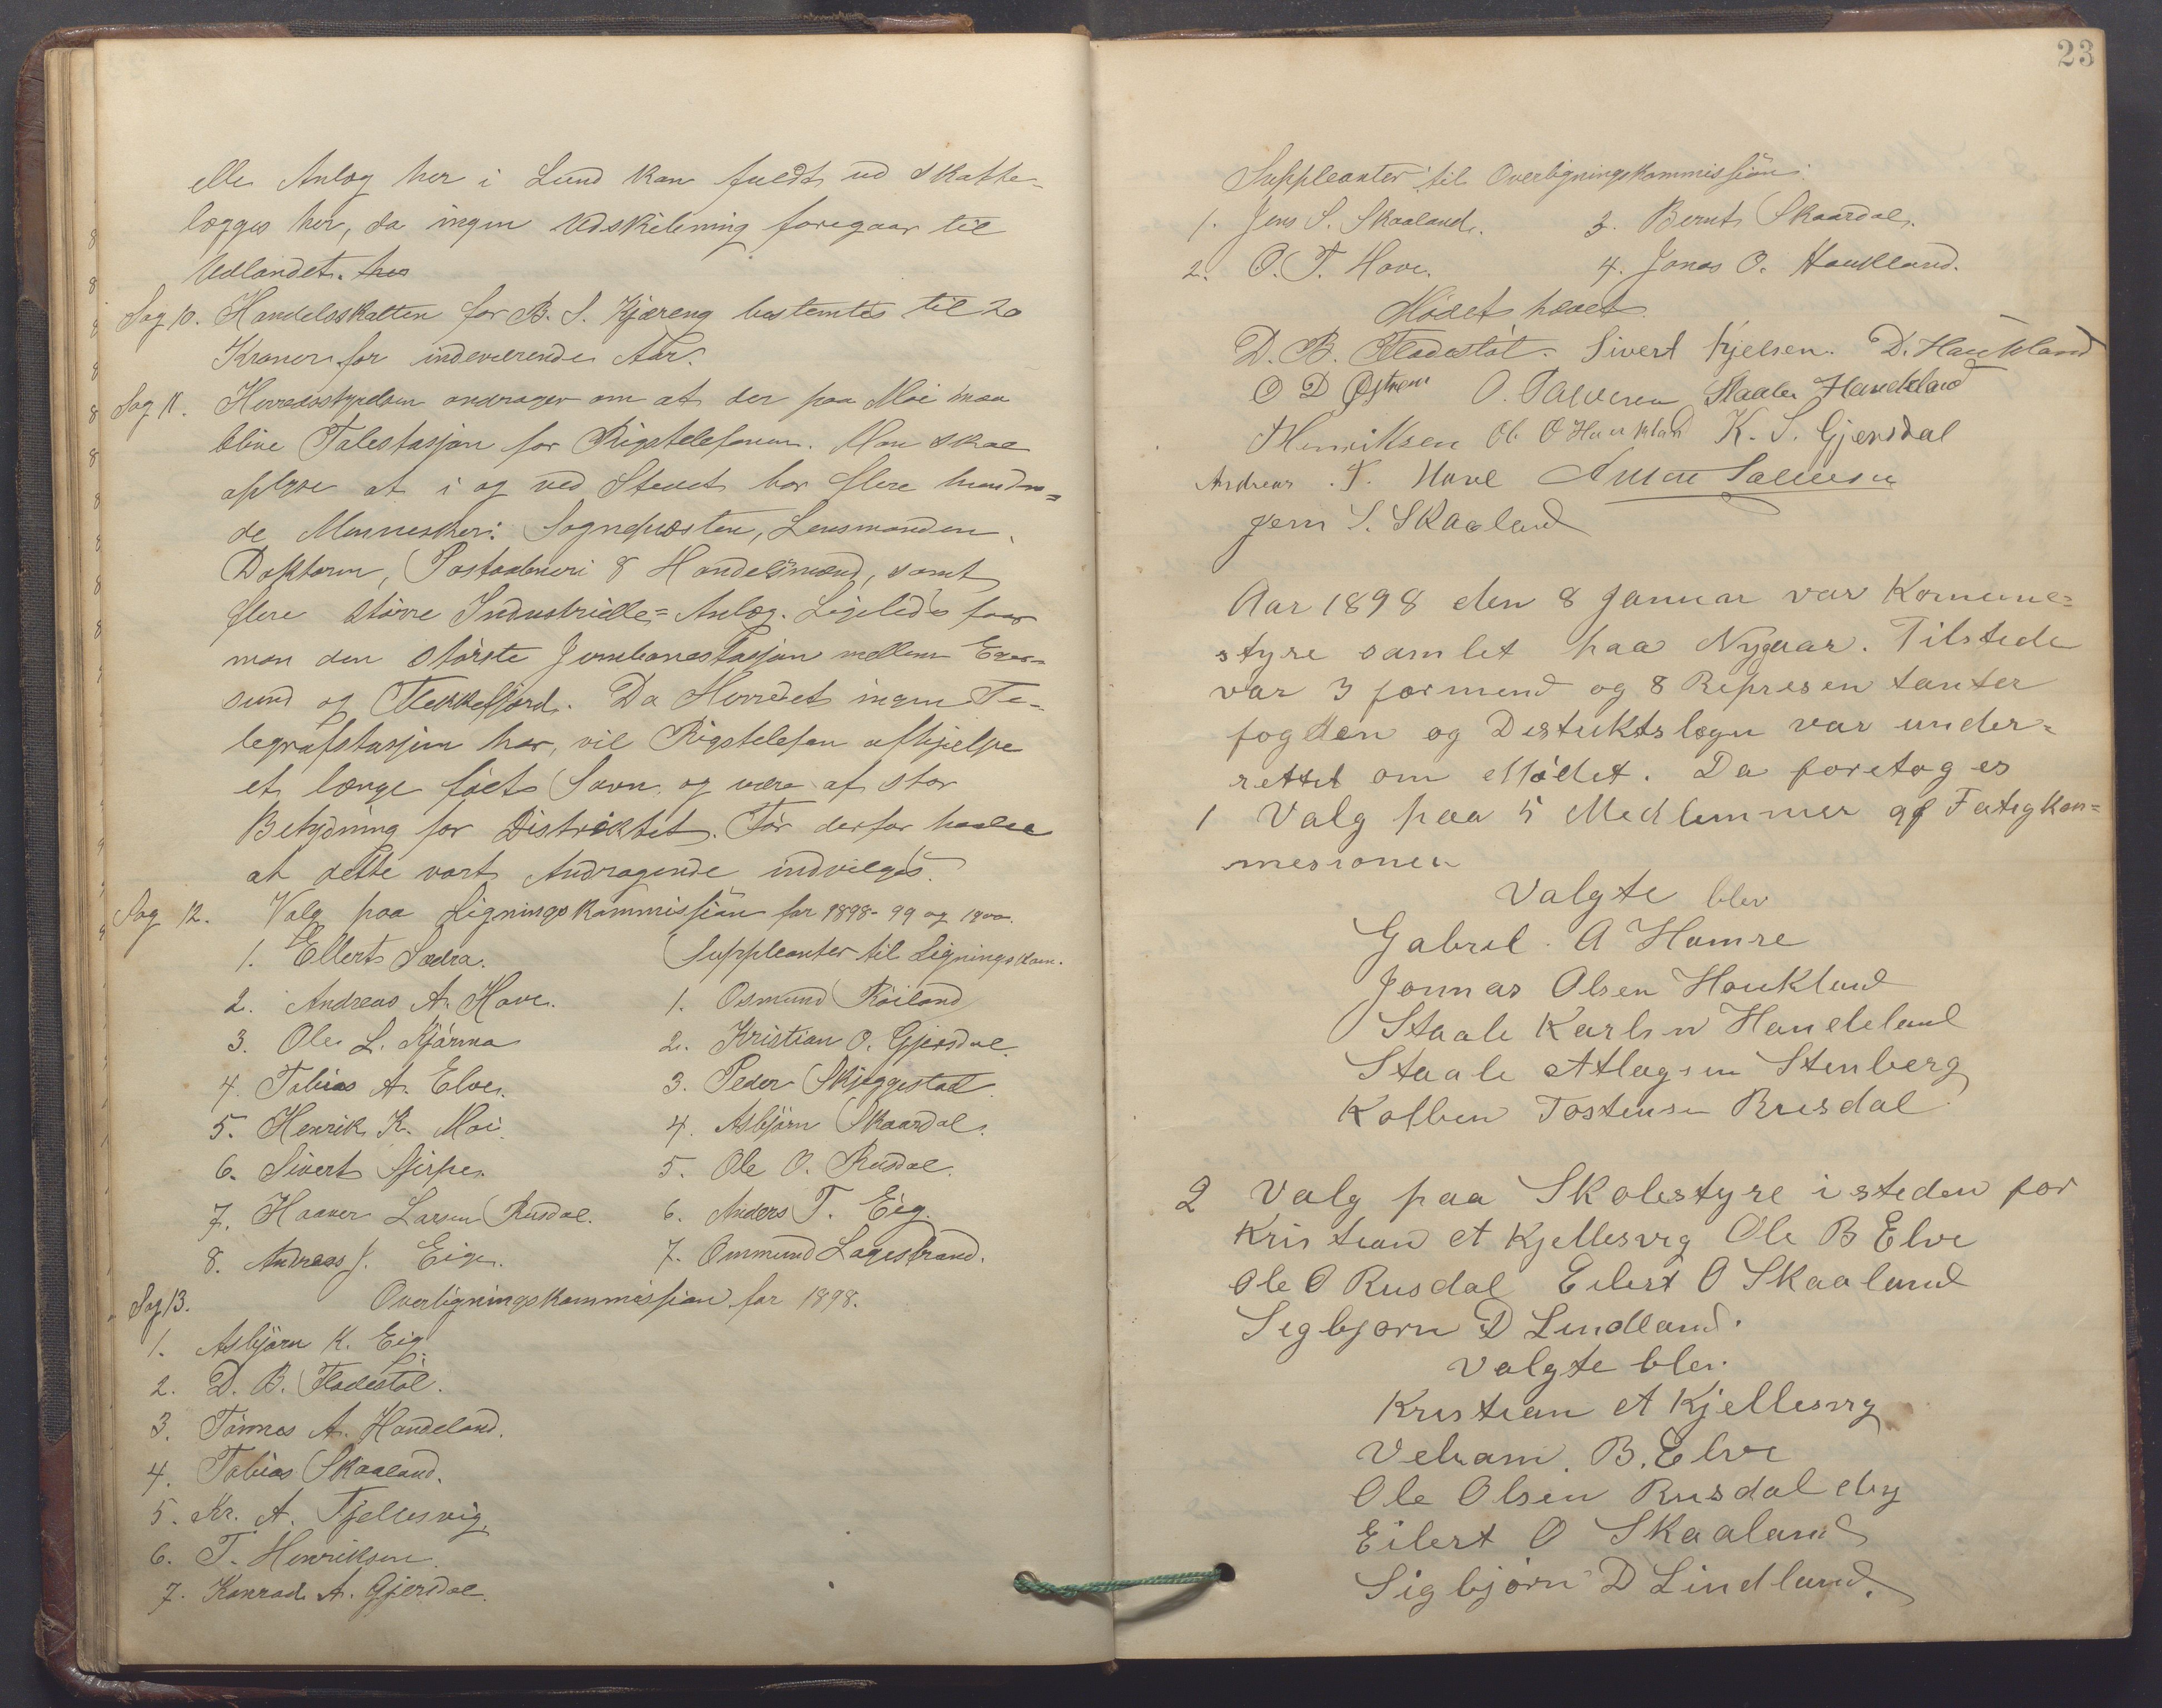 elle Anlæg her i Lund kan fuldt ud skatte-
lægges her, da ingen Udskibning foregaar til
Udlandet.
Sag 10. Handelsskatten for B. S. Kjæreng bestemtes til 20
Kroner for indeværende Aar.
Sag 11. Herredsstyrelsen andrager om at der paa Moi maa
blive Talestasjon for Rigstelefonen. Man skal
oplyse at i og ved Stedet bor flere hundre=
de Mennesker: Sognepræsten, Lensmanden,
Doktoren, Postaabneri 8 Handelsmænd, samt
flere större Industrielle=Anlæg. Ligeledes faar
man den störste Jernbanestasjon mellem Eger=
sund og Flekkefjord. Da Herredet ingen Te-
legrafstasjon har, vil Rigstelefon afhjelpe
et længe fölt Savn og være af stor
Betydning for Distriktet. Tör derfor haabe
at dette vort Andragende indvilges.
Sag 12. Valg paa Ligningskommissjön for 1898-99 og 1900.
1. Ellert Sædra. Suppleanter til Ligningskom.
2. Andreas A. Hove. 1. Osmund Röiland
3. Ole L. Kjörma 2. Kristian O. Gjersdal.
4. Tobias A. Elve. 3. Peder Skjeggestad.
5. Henrik K. Moi. 4. Asbjörn Skaardal.
6. Sivert Sirpe. 5. Ole O. Rusdal.
7. Haaver Larsen Rusdal. 6. Anders T. Eig.
8. Andreas J. Eige. 7. Ommund Lagestrand.
Sag 13. Overligningskommissjon for 1898.
1. Asbjörn K. Eig.
2. D. B. Fladestöl.
3. Tönnes A. Handeland.
4. Tobias Skaaland.
5. Kr. A. Kjellesvig.
6. T. Henriksen.
7. Konrad A. Gjersdal.
23
Suppleanter til Overligningskommissjön:
1. Jens S. Skaaland. 3. Bernt Skaardal.
2. O. T. Hove. 4. Jonas O. Haukland.
Mödet hævet
D. B. Fladestöl. Sivert Kjelsen. D. Haukland
O D Østrem O. Salvesen Staale Handeland
T Henriksen Ol. O Haukland K. S. Gjersdal
Andreas . Hove Salvesen
Jens S. Skaaland
Aar 1898 den 8 Januar var Komune=
styre samlet paa Nygaar. Tilstede
var 3 formend og 8 Represen tanter
fogden og Distriktslægen var under=
rettet om Mödet. Da foretoges
1 Valg paa 5 Medlemmer af Fatigkom=
mesionen
Valgte blev
Gabrel. A Hamre
Jonnas Olsen Haukland
Staale Karlsen Handeland
Staale Atlagsen Stenberg
Kolben Tostensen Rusdal
2 Valg paa Skolestyre i steden for
Kristian A Kjellesvig Ole B Elve
Ole O Rusdal Eilert O Skaaland
Segbjørn D Lindland.
Valgte blev.
Kristian A Kjellesvig
B. Elve
Ole Olsen Rusdal
Eilert O Skaaland
Sigbjörn D Lindland.